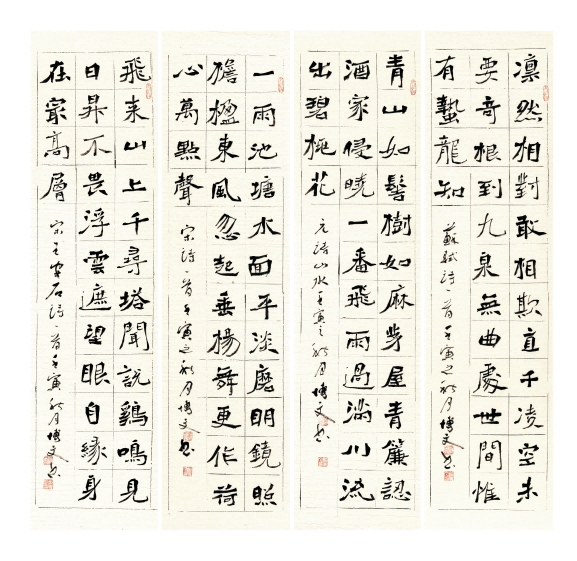 凛然相對敢相欺直千凌空未
要奇根到九泉無曲處世間惟
有蟄龍知
蘇軾詩一首壬寅之秋月博文書
青山如髻樹如麻茅屋青簾認
酒家侵曉一番飛雨過滿川流
出碧桃花
元詩山水壬寅之秋月博文書
一雨池塘水面平淡磨明鏡照
檐楹東風忽起垂楊舞更作荷
心萬點聲
宋詩一首壬寅之秋月博文書
飛來山上千尋塔聞說鷄鳴見
日昇不畏浮雲遮望眼自緣身
在最高層
宋王安石詩一首壬寅秋月博文書